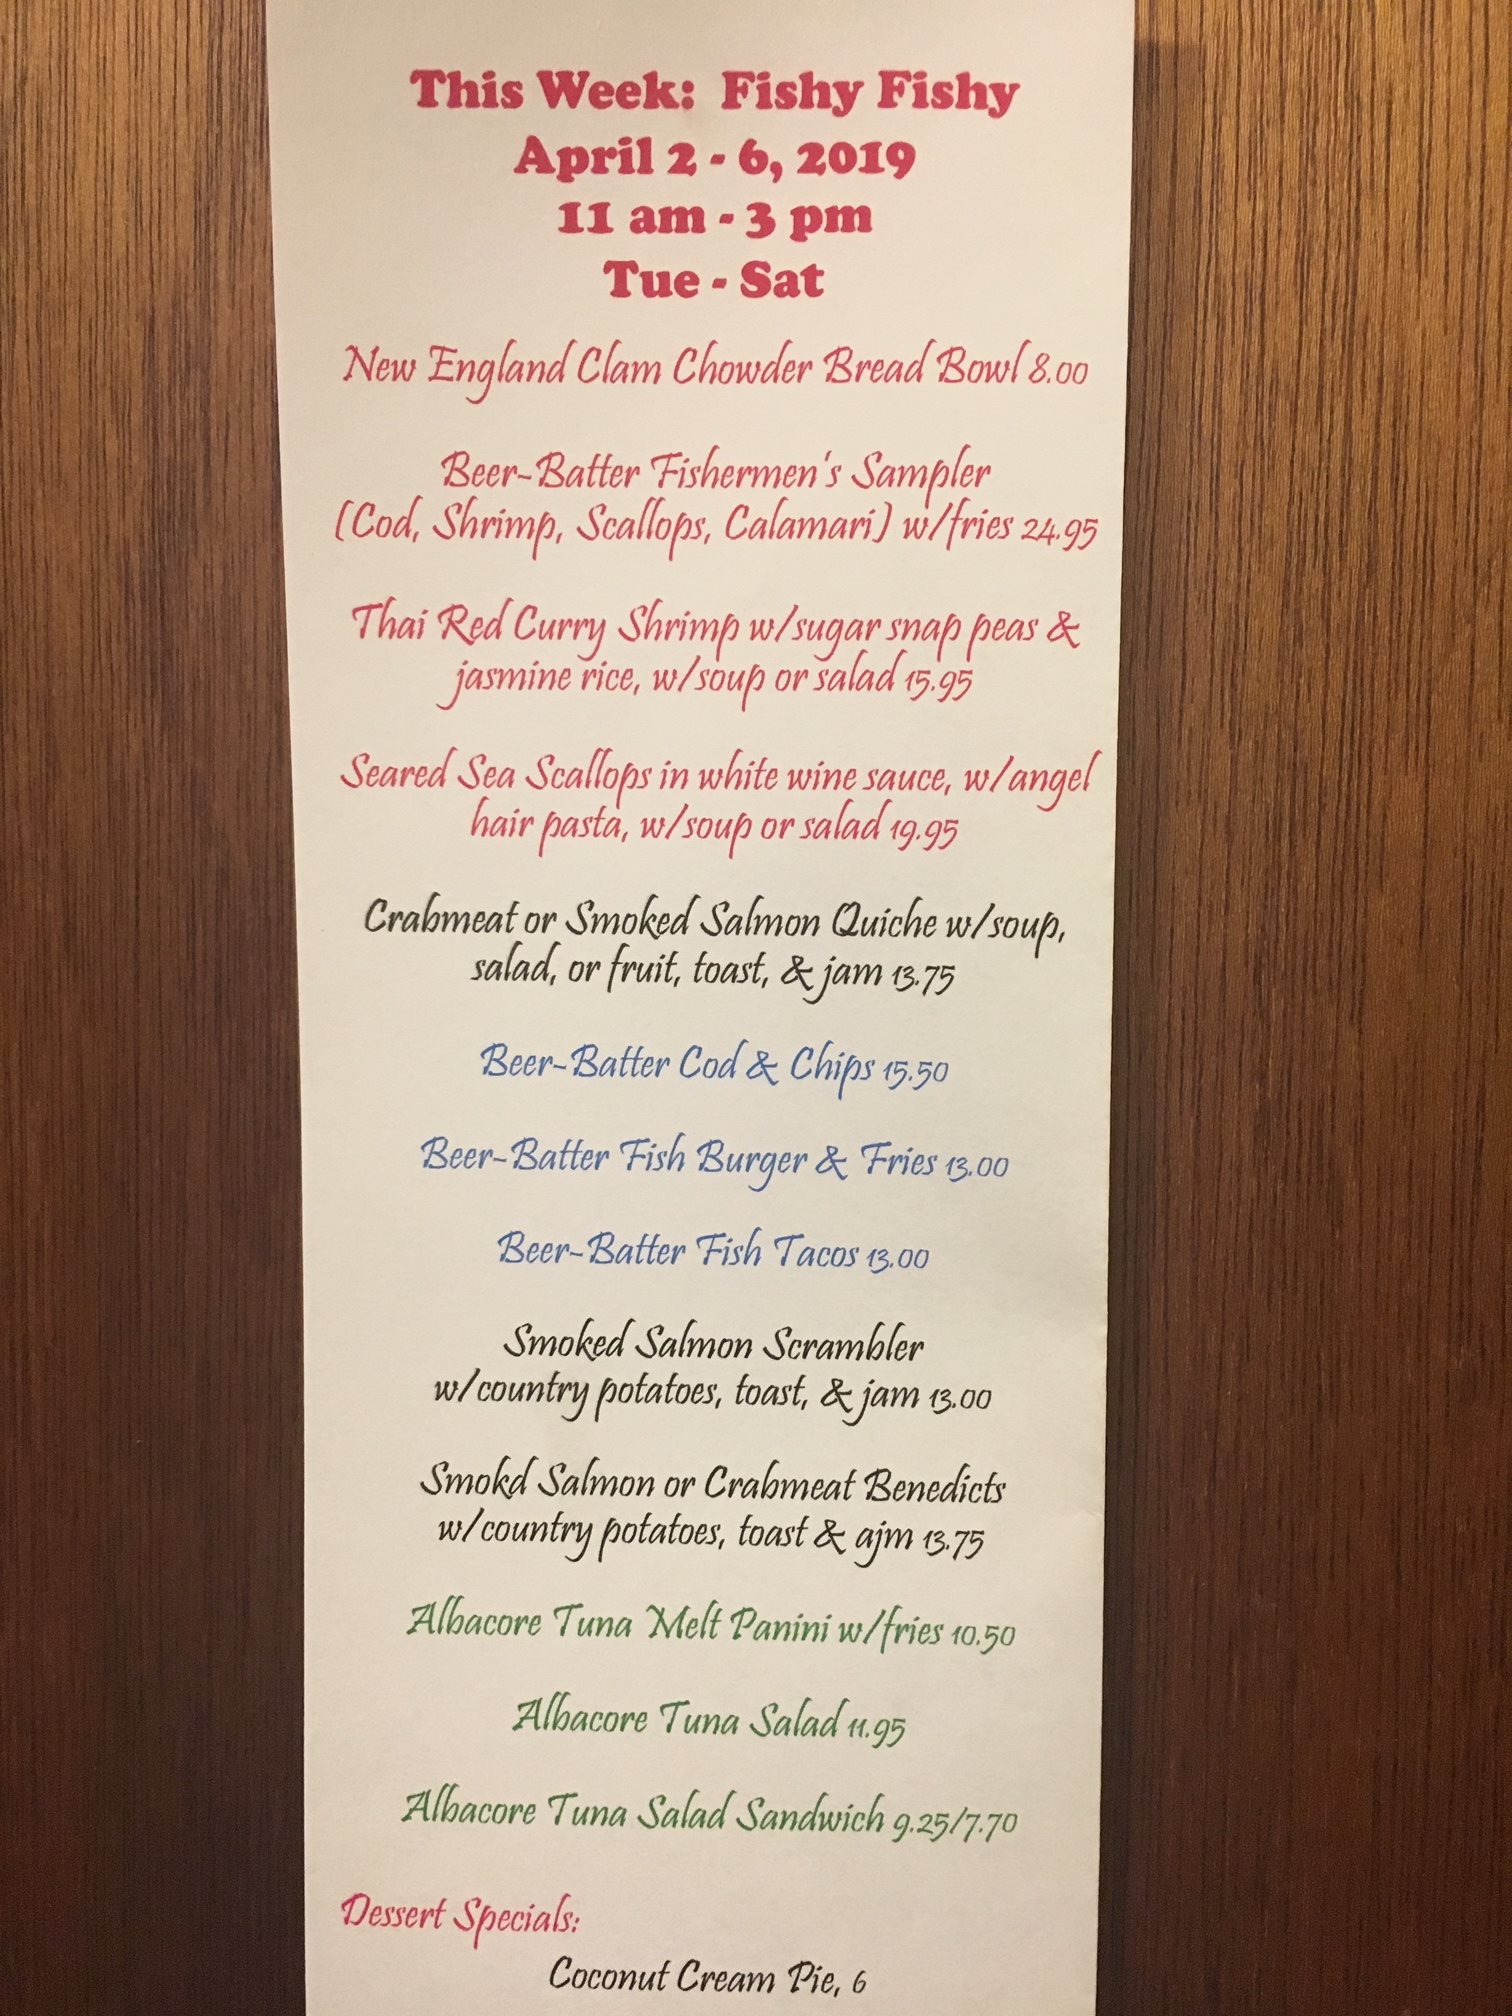 This Week: Fishy Fishy
April 2 - 6, 2019
11 am - 3 pm
Tue - Sat
New England Clam Chowder Bread Bowl 8.00
Beer-Batter Fishermen's Sampler
(Cod, Shrimp, Scallops, Calamari) w/fries 24.95
Thai Red Curry Shrimp w/sugar snap peas &
jasmine rice, w/soup or salad 15.95
Seared Sea Scallops in white wine sauce, w/angel
hair pasta, w/soup or salad 19.95
Crabmeat or Smoked Salmon Quiche w/soup,
salad, or fruit, toast, & jam 13.75
Beer-Batter Cod & Chips 15.50
Beer-Batter Fish Burger & Fries 13.00
Beer-Batter Fish Tacos 13.00
Smoked Salmon Scrambler
w/country potatoes, toast, & jam 13.00
Smokd Salmon or Crabmeat Benedicts
w/country potatoes, toast & ajm 13.75
Albacore Tuna Melt Panini w/fries 10.50
Albacore Tuna Salad 11.95
Albacore Tuna Salad Sandwich 9.25/7.70
Dessert Specials:
Coconut Cream Pie, 6